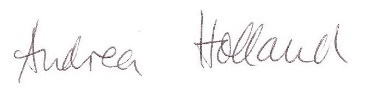 Andrea Holland